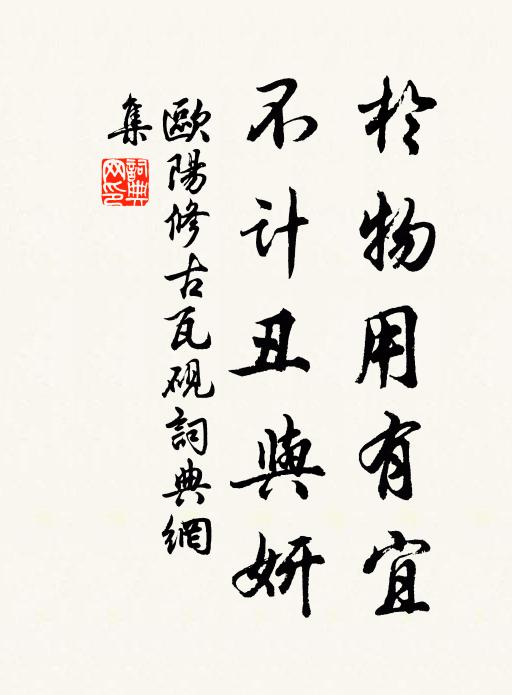 於物用有宜
不计丑與妍
歐陽修古瓦硯詞典網
集
詞典
网印